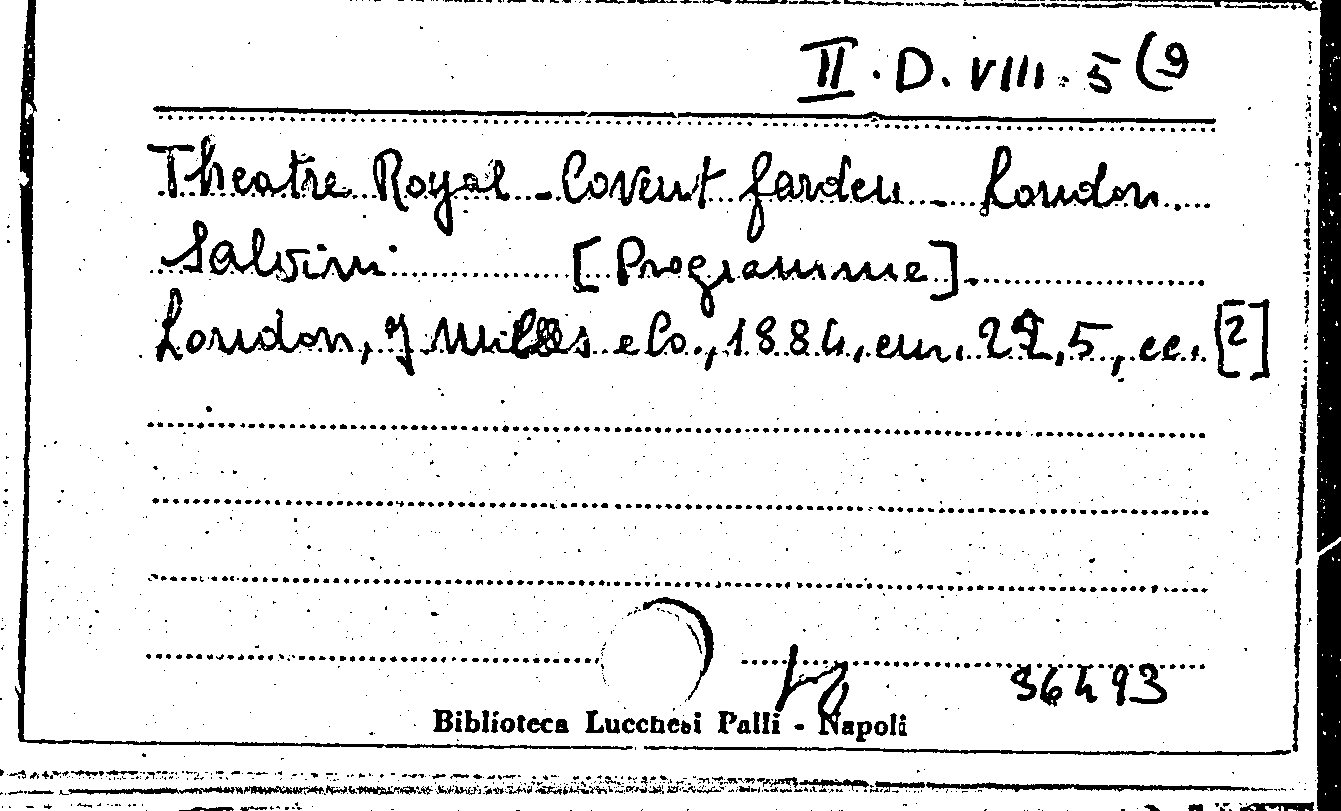 II. D. VIII. 5 (9
Theatre Royal - Covent Garden - London.
Salvini [Programme].
London, J Miles e Co., 1884, cm. 22,5, cc. [2]
36493
Biblioteca Lucchesi Palli - Napoli